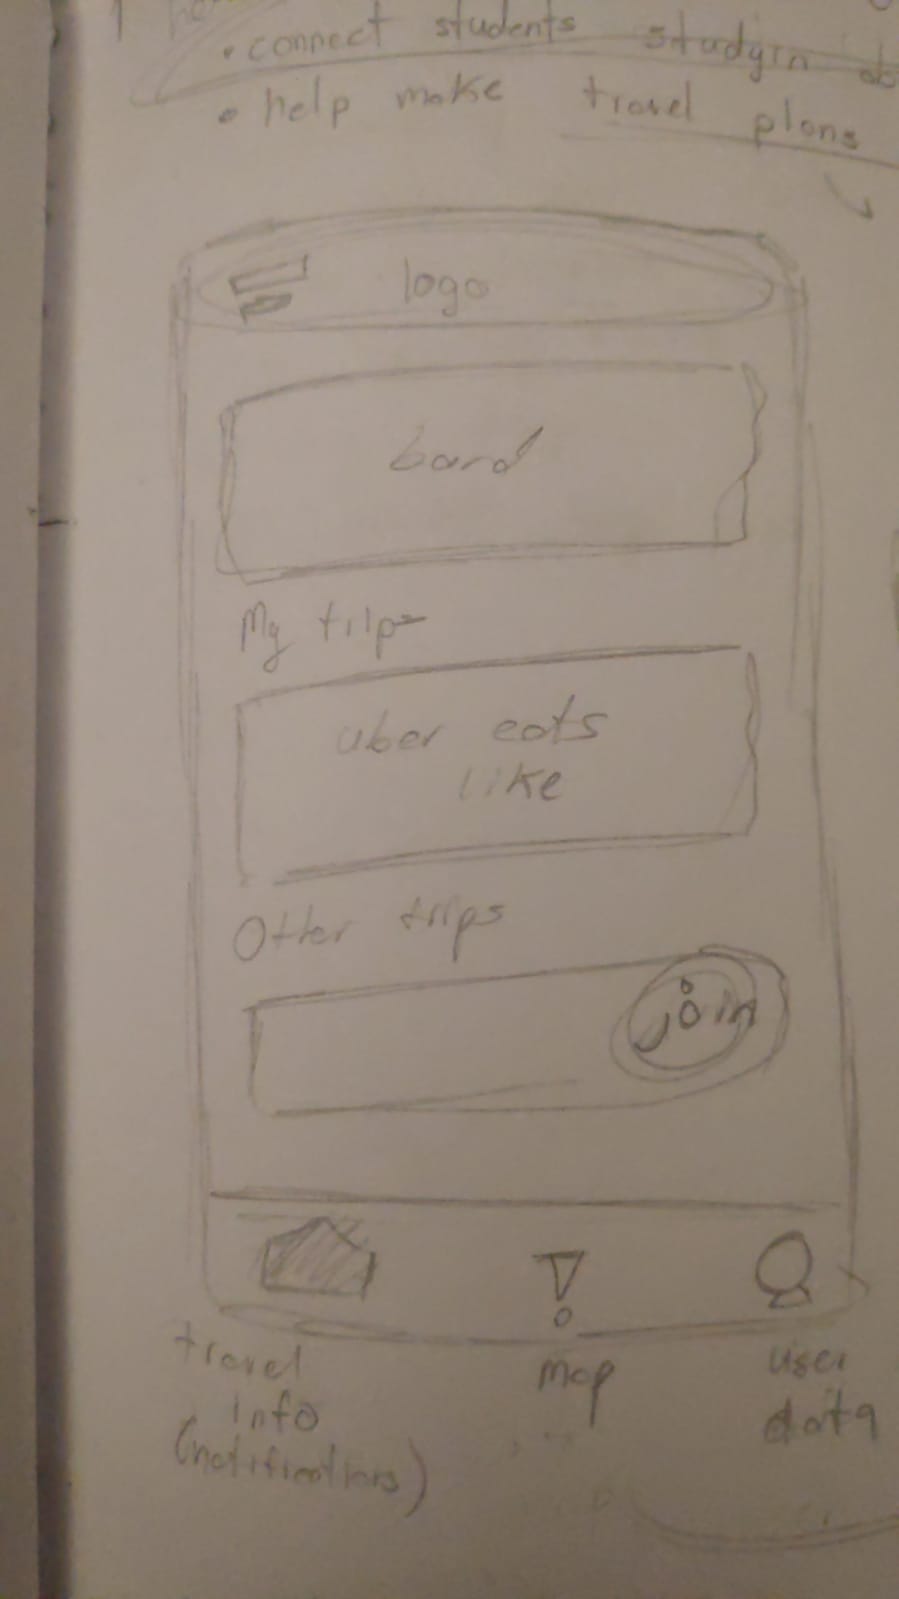 • connect students studyin ab
• help make travel plans
logo
bard
My trips
uber eats
like
Other trips
join
travel
info
(notifications)
map
user
data